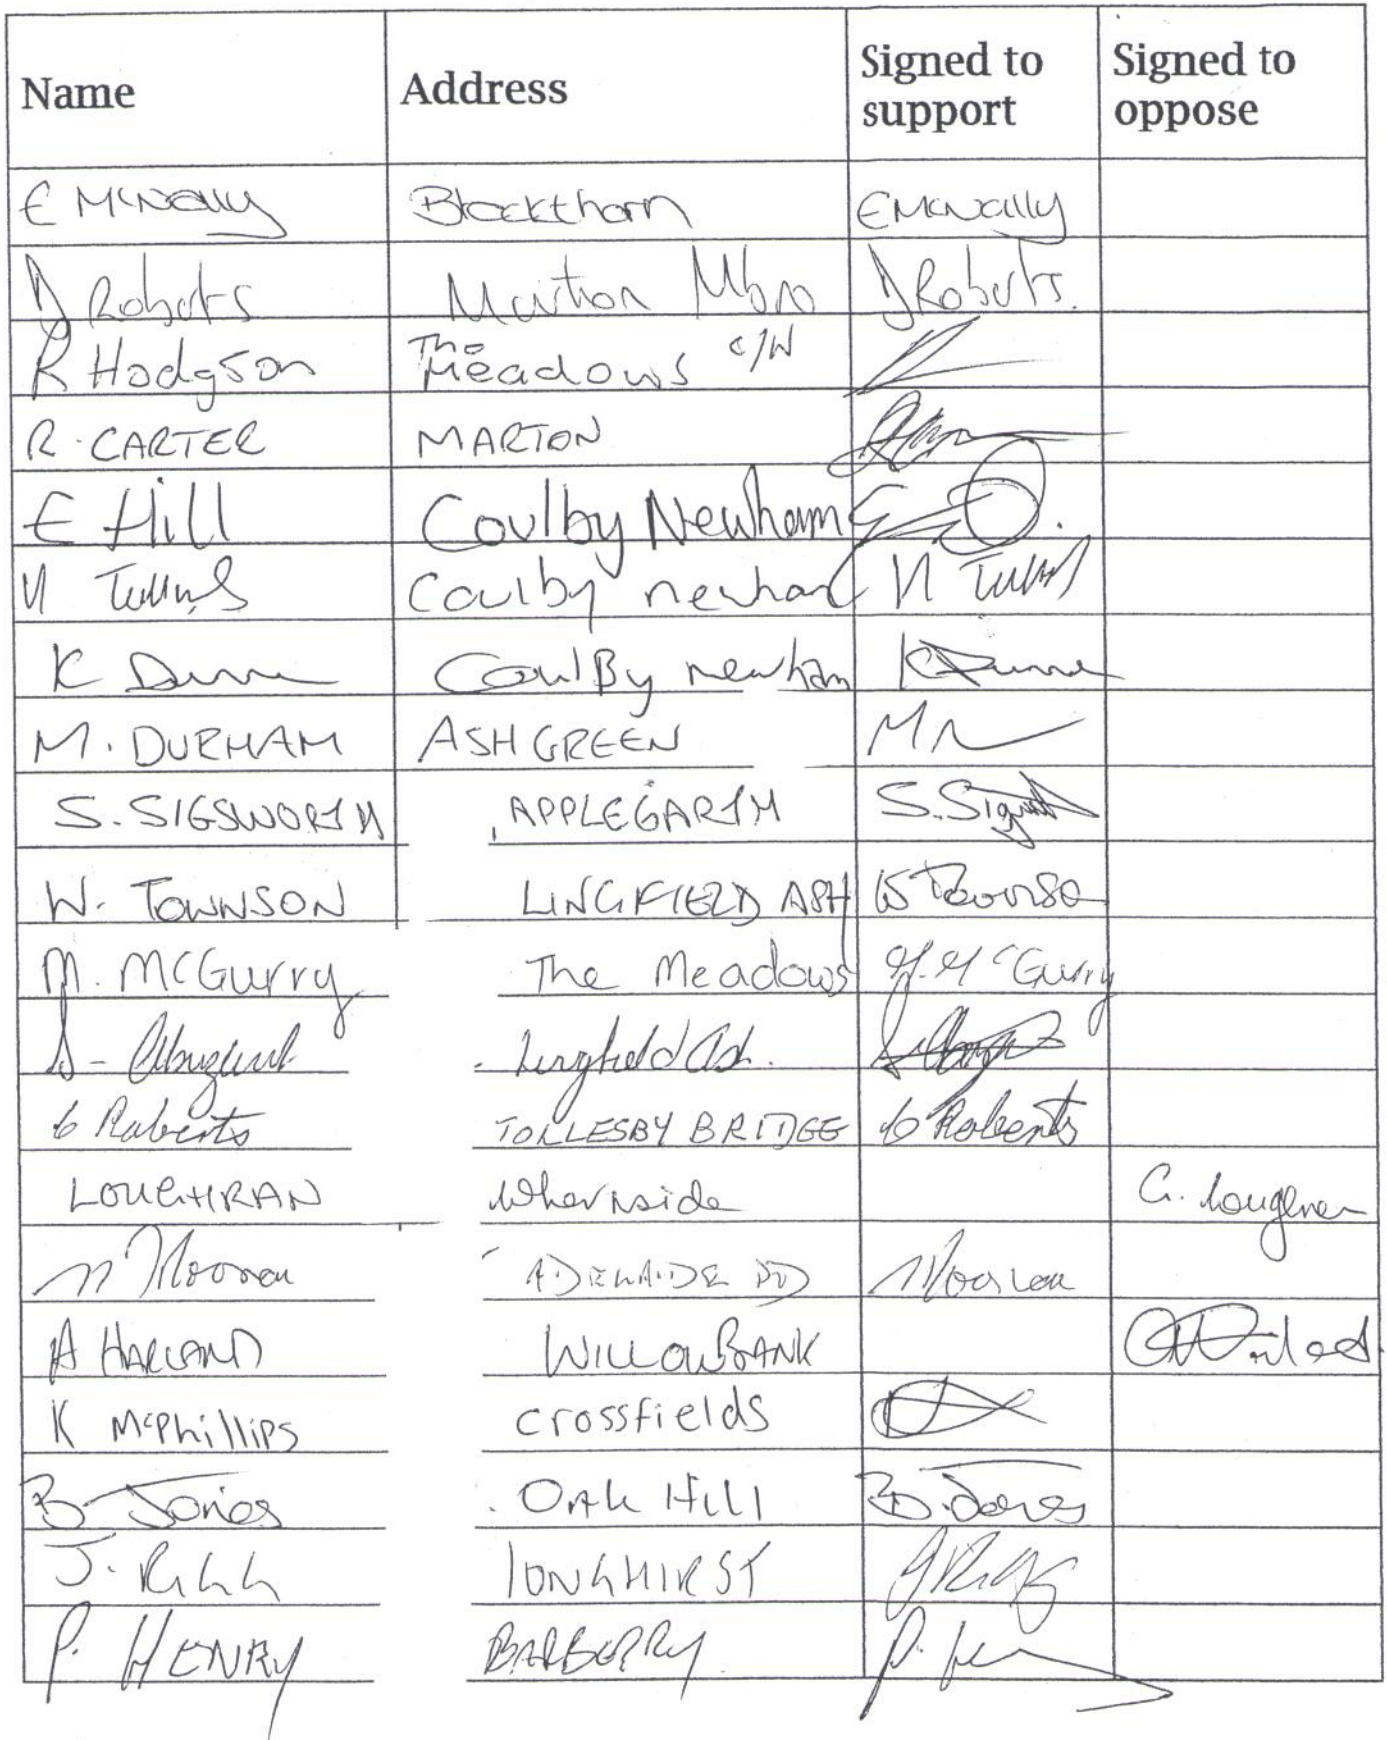 Name Address Signed to support Signed to oppose
E McNally Blackthorn EMcNally
J Roberts Marton Mbro J Roberts.
R Hodgson The Meadows C/W
R. CARTER MARTON
E Hill Coulby Newham
Coulby newham
K Dunne CoulBy newham K Dunne
M. DURHAM ASHGREEN
S. SIGSWORTH APPLEGARTH S. Sigsworth
W. TOWNSON LINGFIELD ASH W Townson
M. McGurry The Meadows M. McGurry
Lingfield Ash.
Roberts TOLLESBY BRIDGE Roberts
LOUGHRAN Whernside G. Loughran
Noonan ADELAIDE RD Noonan
A HARLAND WILLOWBANK
K McPhillips Crossfields
B Jones Oak Hill B. Jones
J. RIGG LONGHIRST J Rigg
P. HENRY BARBERRY